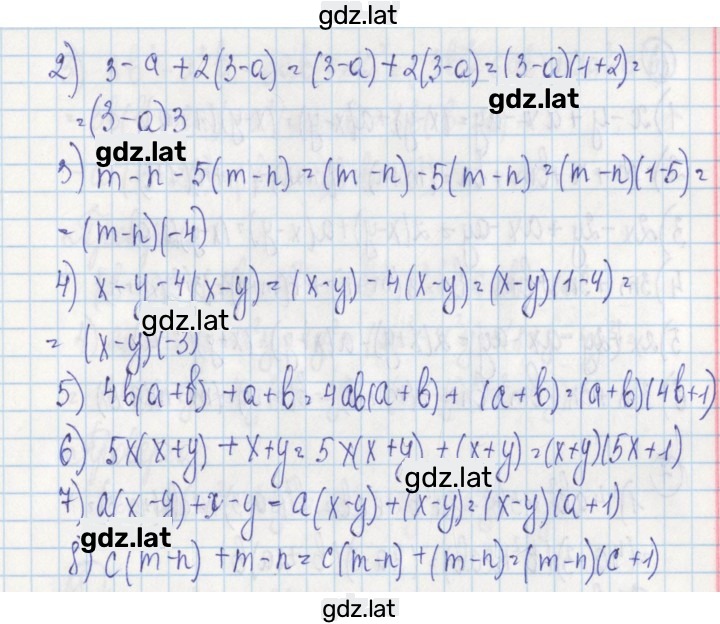 gdz.lat
2) 3-a+2(3-a)=(3-a)+2(3-a)=(3-a)(1+2)=
gdz.lat
=(3-a)3
gdz.lat
3) m-n-5(m-n)=(m-n)-5(m-n)=(m-n)(1-5)=
=(m-n)(-4)
4) x-y-4(x-y)=(x-y)-4(x-y)=(x-y)(1-4)=
gdz.lat
=(x-y)(-3)
5) 4b(a+b)+a+b=4ab(a+b)+(a+b)=(a+b)(4b+1)
6) 5x(x+y)+x+y=5x(x+y)+(x+y)=(x+y)(5x+1)
gdz.lat
7) a(x-y)+x-y=a(x-y)+(x-y)=(x-y)(a+1)
gdz.lat
8) c(m-n)+m-n=c(m-n)+(m-n)=(m-n)(c+1)
gdz.lat